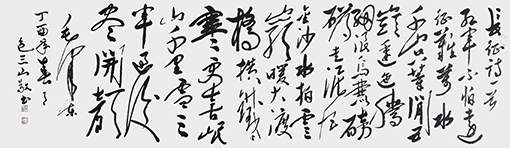 长征诗一首
红军不怕远
征难万水
千山只等闲五
岭逶迤腾
细浪乌蒙磅
礴走泥丸
金沙水拍云
崖暖大渡
桥横铁索
寒更喜岷
山千里雪三
军过后
尽开颜
毛泽东
丁酉年春月
色三山敬书